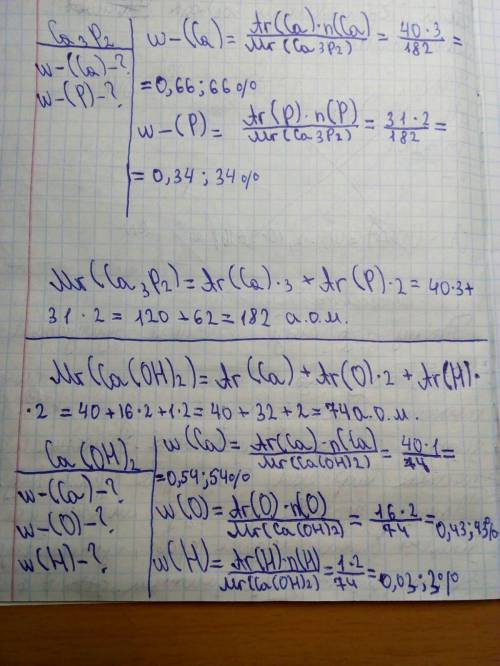 Ca₃P₂
w-(Ca)-?
w-(P)-?
w-(Ca) = Ar(Ca)·n(Ca) / Mr(Ca₃P₂) = 40·3 / 182 =
= 0,66; 66%
w-(P) = Ar(P)·n(P) / Mr(Ca₃P₂) = 31·2 / 182 =
= 0,34; 34%
Mr(Ca₃P₂) = Ar(Ca)·3 + Ar(P)·2 = 40·3+
31·2 = 120+62 = 182 а.о.м.
Mr(Ca(OH)₂) = Ar(Ca) + Ar(O)·2 + Ar(H)·
·2 = 40+16·2+1·2 = 40+32+2 = 74 а.о.м.
Ca(OH)₂
w-(Ca)-?
w-(O)-?
w(H)-?
w(Ca) = Ar(Ca)·n(Ca) / Mr(Ca(OH)2) = 40·1 / 74 =
= 0,54; 54%
w(O) = Ar(O)·n(O) / Mr(Ca(OH)₂) = 16·2 / 74 = 0,43; 43%
w(H) = Ar(H)·n(H) / Mr(Ca(OH)₂) = 1·2 / 74 = 0,03; 3%